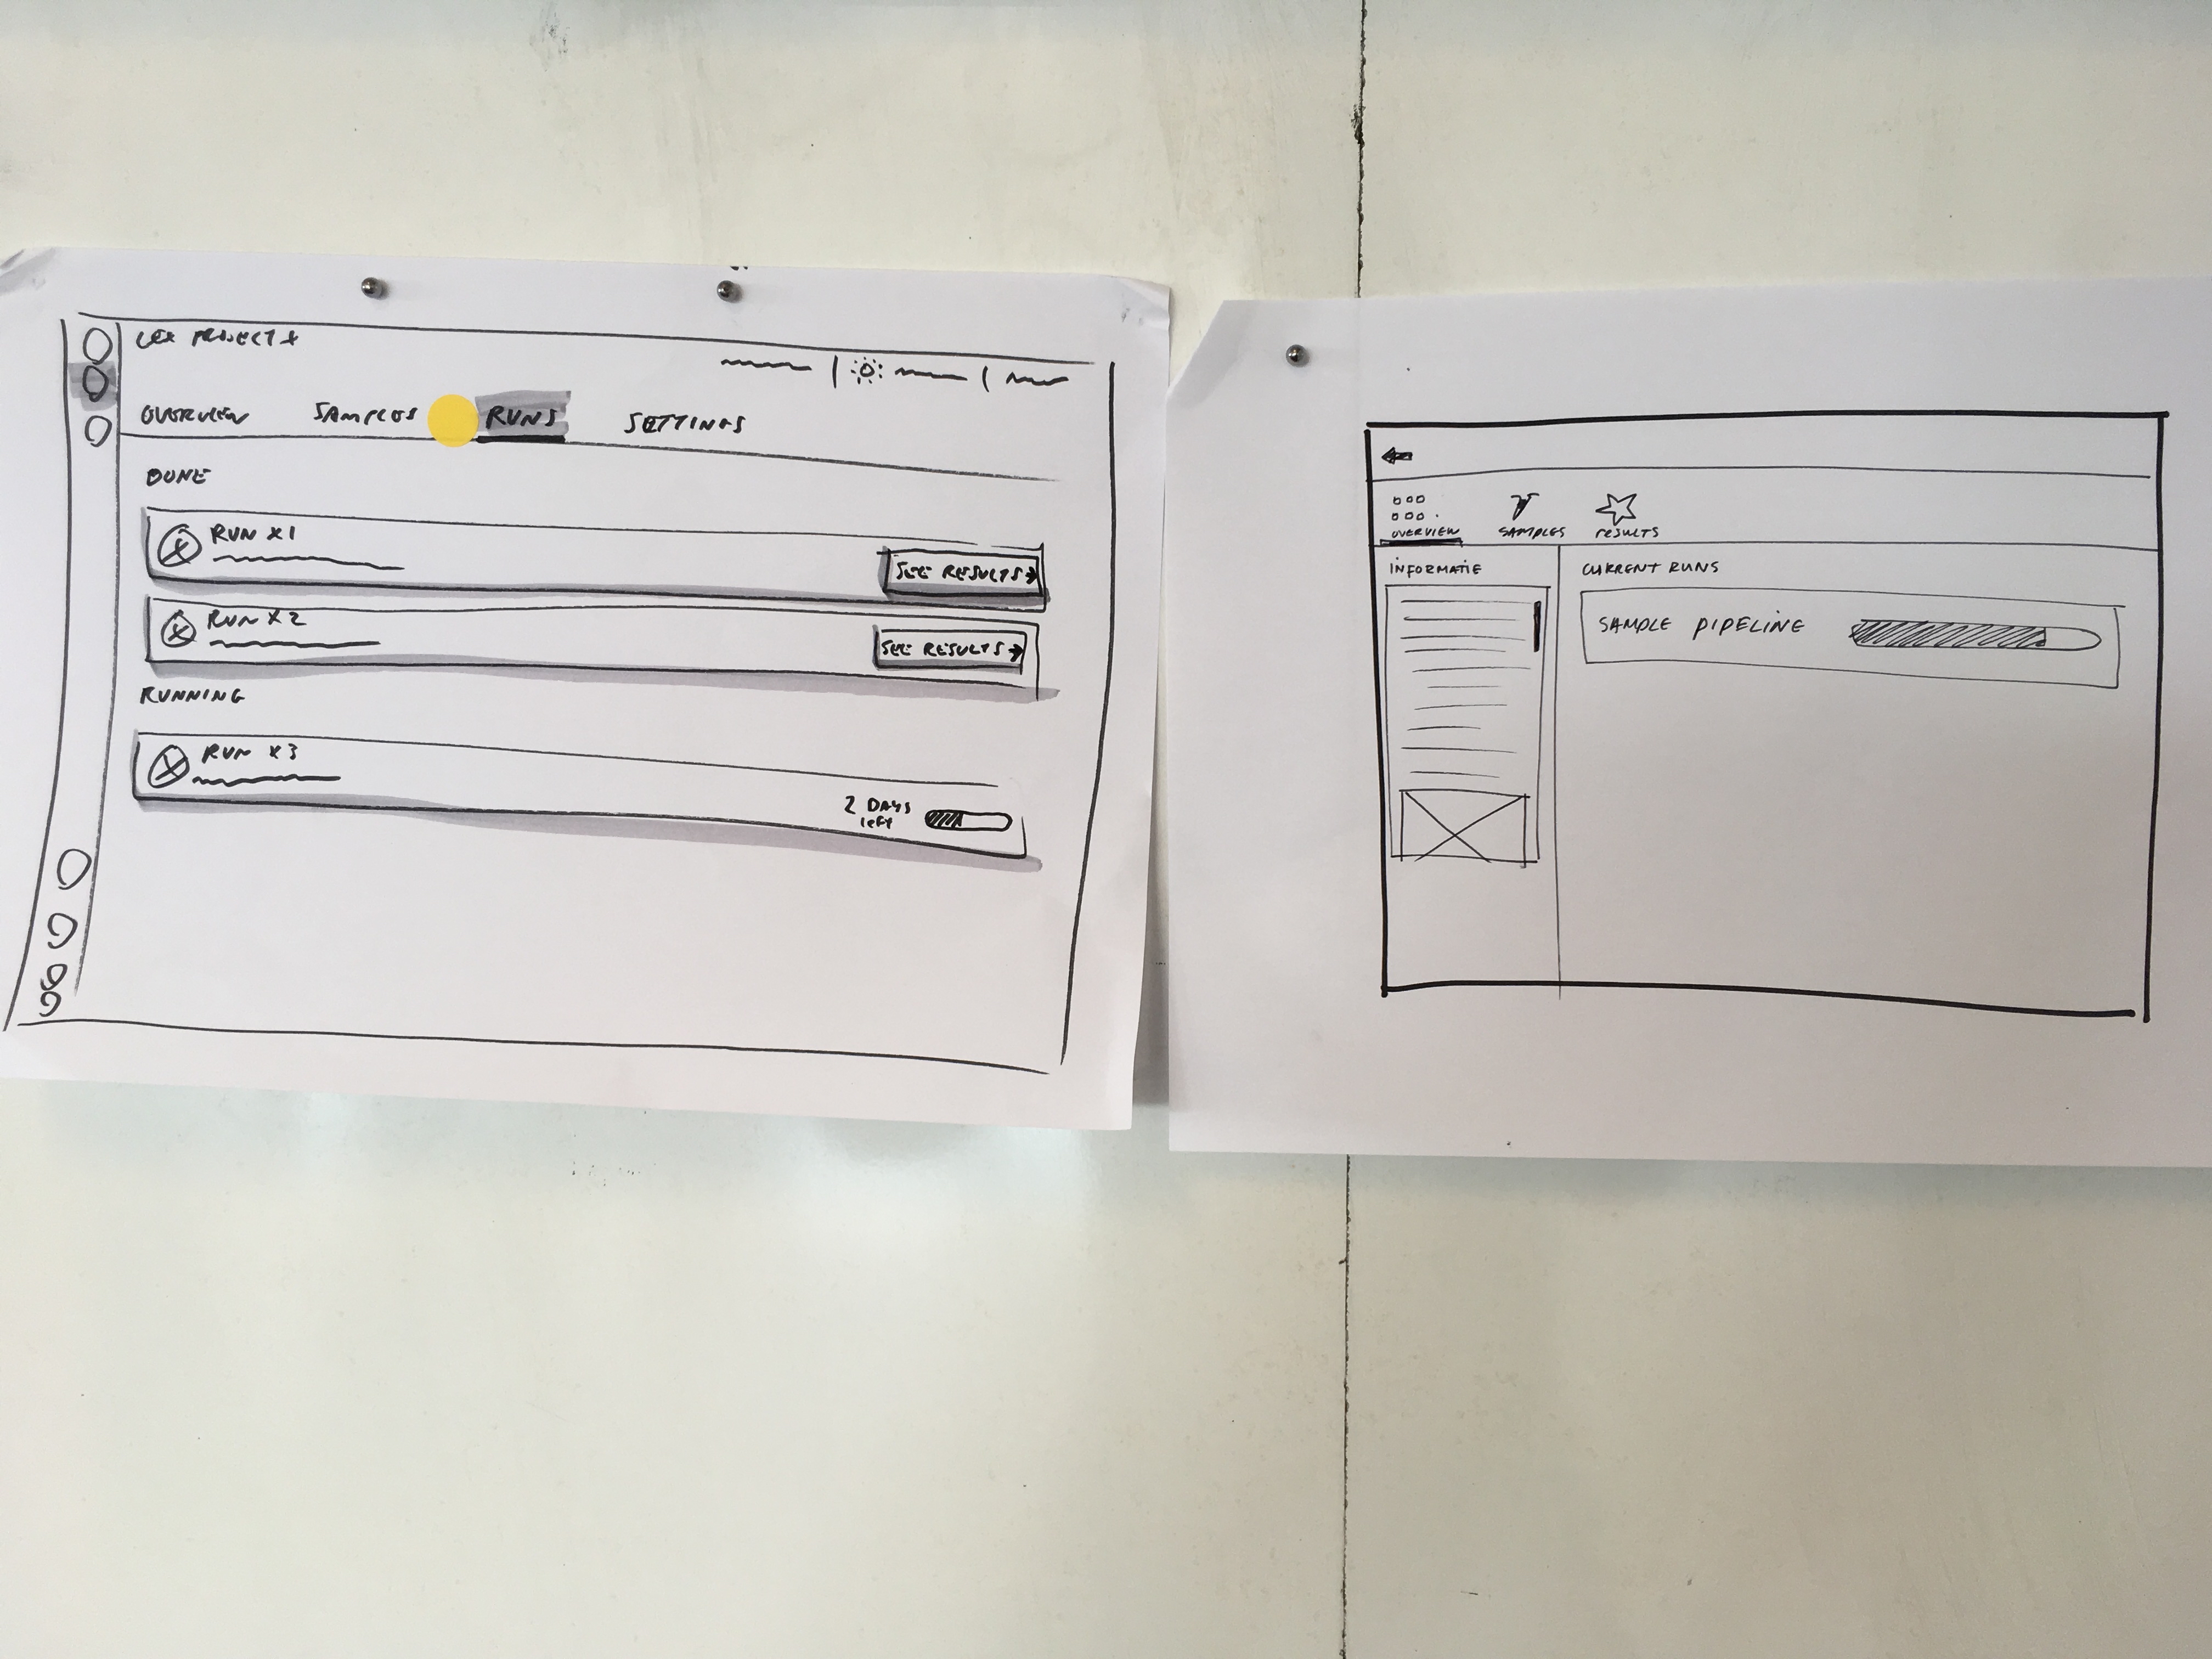 PROJECT X
OVERVIEW SAMPLES RUNS SETTINGS
DONE
RUN X1
SEE RESULTS →
RUN X2
SEE RESULTS →
RUNNING
RUN X3
2 DAYS
left
OVERVIEW SAMPLES RESULTS
INFORMATIE
CURRENT RUNS
SAMPLE PIPELINE